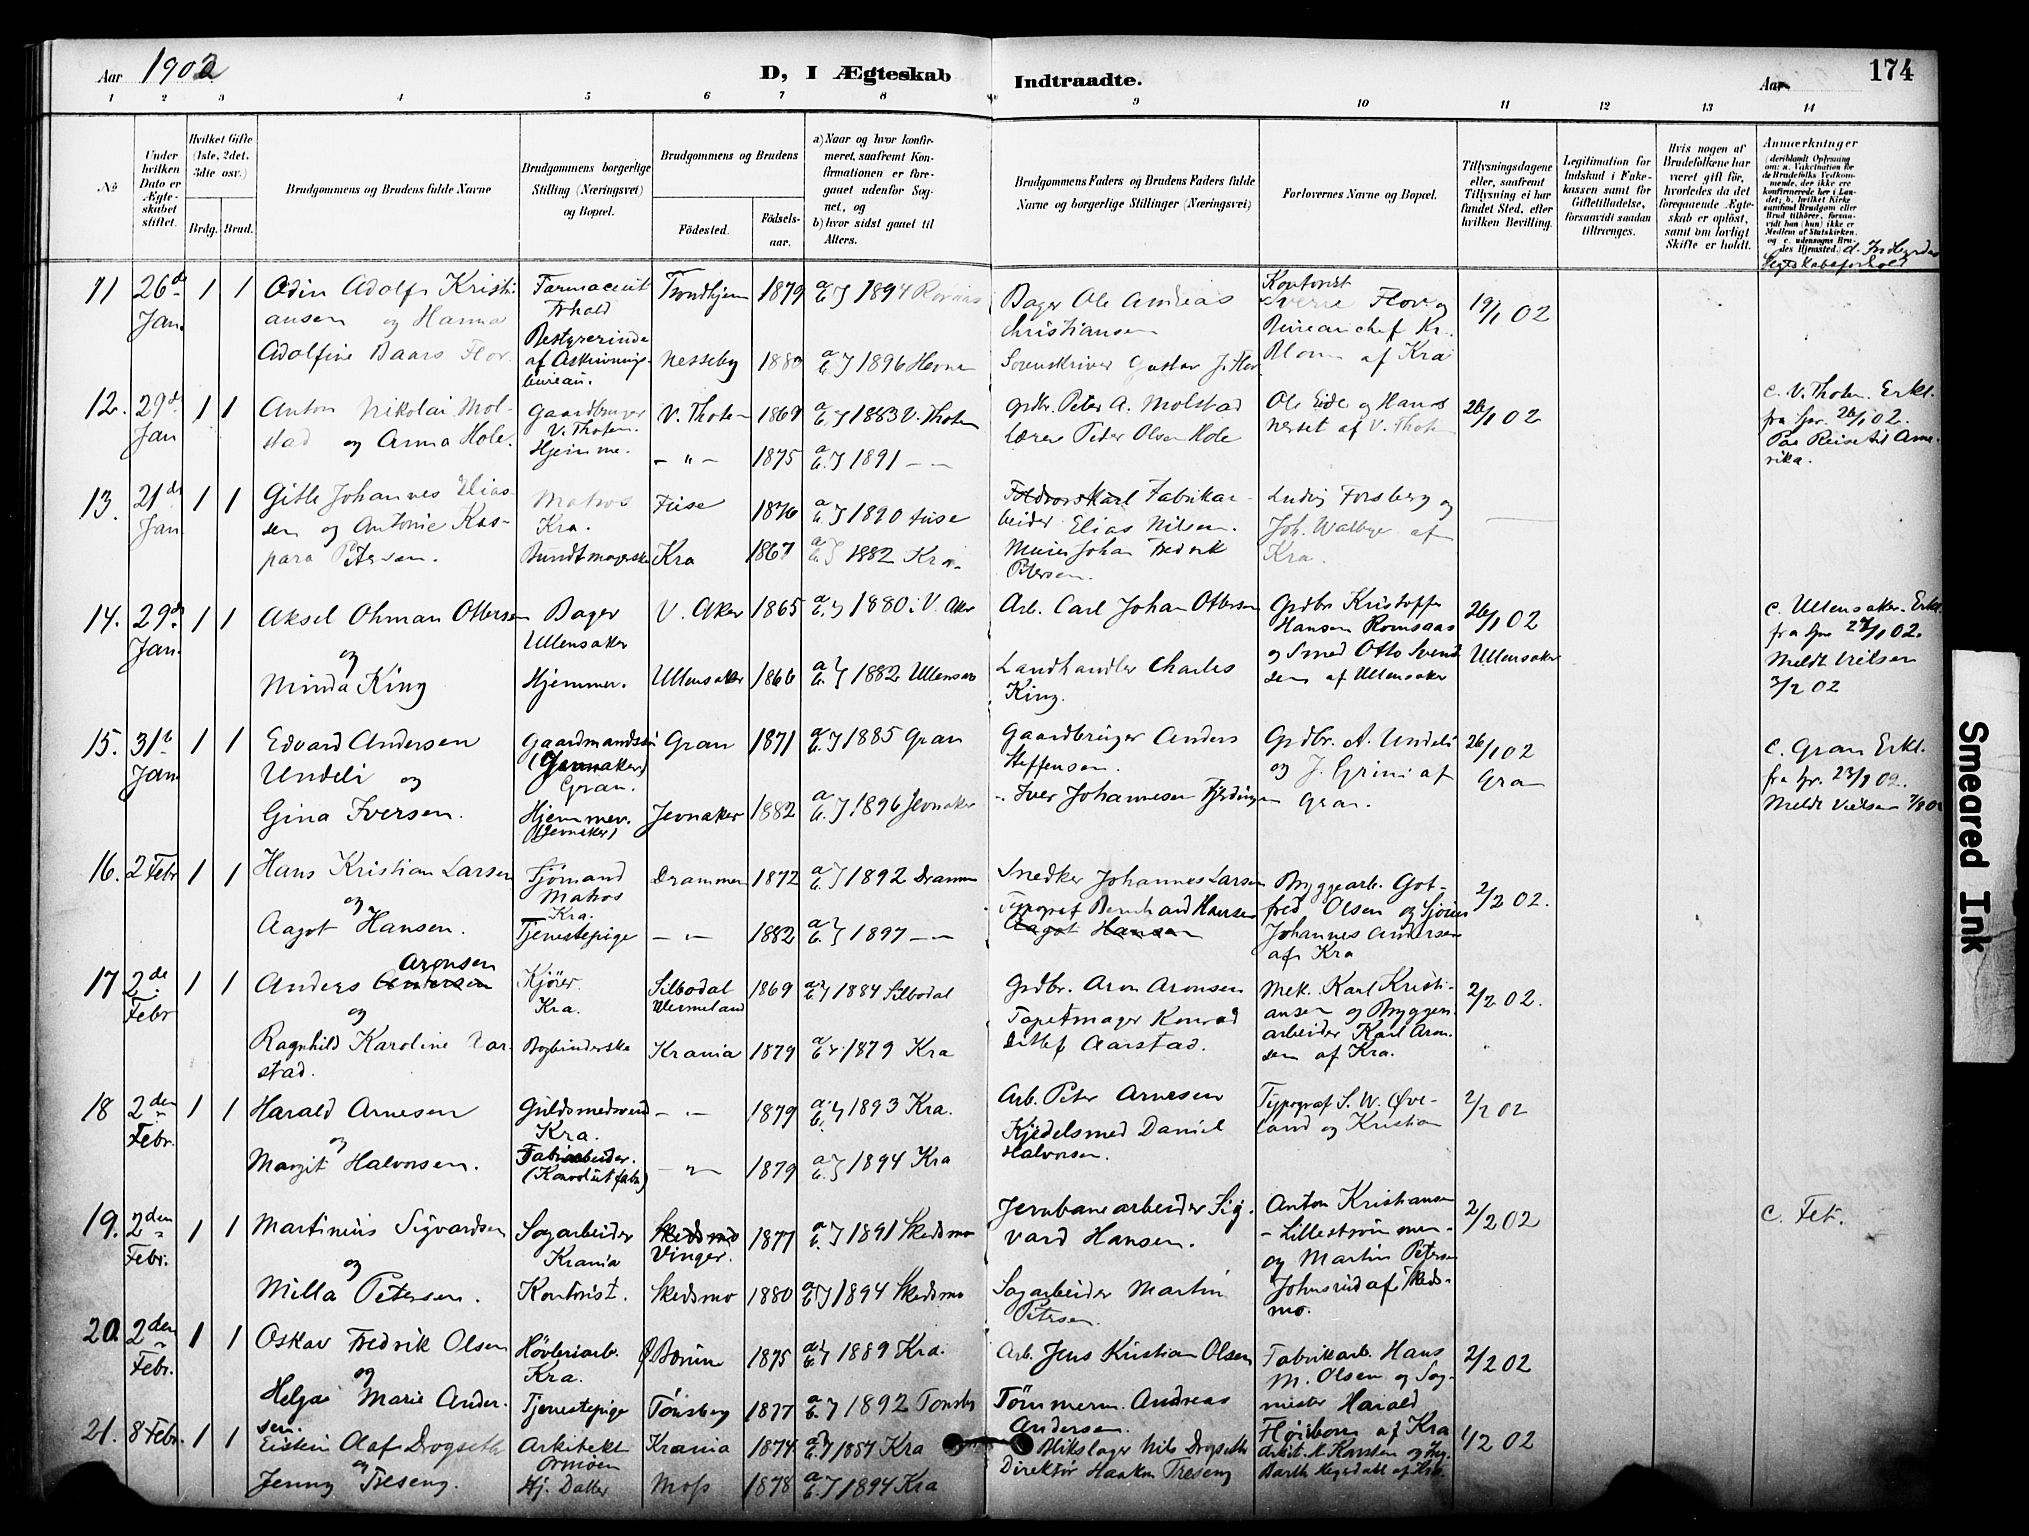 Aar 1902
D, I Ægteskab Indtraadte.
Aar 174
1 2 3 4 5 6 7 8 9 10 11 12 13 14
No
Under hvilken Dato er Ægteskabet stiftet.
Hvilket Gifte (1ste, 2det, 3die osv.)
Brdg. Brud.
Brudgommens og Brudens fulde Navne
Brudgommens borgerlige Stilling (Næringsvei) og Bopæl.
Brudgommens og Brudens
Fødested. Fødselsaar.
a) Naar og hvor konfirmeret, saafremt Konfirmationen er foregaaet udenfor Sognet, og
b) hvor sidst gaaet til Alters.
Brudgommens Faders og Brudens Faders fulde Navne og borgerlige Stillinger (Næringsvei)
Forlovernes Navne og Bopæl.
Tillysningsdagene eller, saafremt Tillysning ei har fundet Sted, efter hvilken Bevilling.
Legitimation for Indskud i Enkekassen samt for Giftetilladelse, forsaavidt saadan tiltrænges.
Hvis nogen af Brudefolkene har været gift før, hvorledes da det foregaaende Ægteskab er opløst, samt om lovligt Skifte er holdt.
Anmærkninger
11 26de Jan. 1 1
Odin Adolf Kristiansen og Hanna Adolfine Baars Flor.
Farmaceut
Bestyrerinde af Afskrivningsbureau.
Trondhjem 1879 1894
Nesseby 1880 1896
Bager Ole Andreas Christiansen
Sorenskriver Gustav J. Flor
Kontorist Sverre Flor og Bureauchef Kr. Blom af Kra
19/1 02
12. 29de Jan 1 1
Anton Nikolai Molstad og Anna Hole.
Gaardbruger V. Thoten.
Hjemme.
V. Thoten 1869 1883 V. Thoten
- " - 1875 1891 - -
Grdbr. Peter A. Molstad
Lærer Peder Olsen Hole
Ole Eide og Hans Nerset af V. Thoten
26/1 02
c. V. Thoten. Erkl. fra spr. 26/1 02.
Paa Reise til Amerika.
13. 21de Jan 1 1
Gitle Johannes Eliassen og Antonie Kaspara Petersen.
Matros Kra.
Bundtmagerske
Fuse 1876 1890 Fuse
Kra 1867 1882 Kra
Fabrikarbeider Elias Nilsen.
Murer Johan Fredrik Petersen.
Ludvig Forsberg og Joh. Walbye af Kra.
14. 29de Jan. 1 1
Aksel Ohman Ottersen og Minda King
Bager Ullensaker
Hjemmev.
V. Aker 1865 1880 i V. Aker
Ullensaker 1866 1882 Ullensaker
Arb. Carl Johan Ottersen
Landhandler Charles King.
Grdbr Kristoffer Hansen Romsaas og Smed Otto Svendsen af Ullensaker
26/1 02 Ullensaker
c. Ullensaker. Erkl. fra spr 27/1 02.
Meldt vielsen 3/2 02
15. 31te Jan 1 1
Edvard Andersen Undeli og Gina Iversen.
Gaardmandssøn Gran.
Hjemmev. (Jevnaker)
Gran 1871 1885 Gran
Jevnaker 1882 1896 Jevnaker
Gaardbruger Anders Steffensen.
- Iver Johannesen
Grdbr. A. Undeli og J. Grini af Gran.
26/1 02 Gran
c. Gran Erkl. fra spr. 23/1 02.
Meldt vielsen
16. 2 Febr 1 1
Hans Kristian Larsen og Aagot Hansen.
Sjømand Matros Kra.
Tjenestepige
Drammen 1872 1892 Drammen
- " - 1882 1897 - -
Snedker Johannes Larsen
Typograf Bernhard Hansen
Aagot Hansen
Byggearb. Gotfred Olsen og Johannes Andersen af Kra
2/2 02.
17 2de Febr 1 1
Anders Andersen Aronsen og Ragnhild Karoline Aarstad.
Kjører. Kra.
Bogbinderske
Silbodal Wermeland 1869 1884 Silbodal
Krania 1879 1879 Kra
Grdbr. Aron Aronsen
Tapetmager Konrad Ditlef Aarstad.
Mek. Karl Kristiansen og Byggen.arbeider Karl Aronsen af Kra.
2/2 02.
18 2den Febr. 1 1
Harald Arnesen og Margit Halvorsen.
Guldsmedsvend Kra.
Fabriarbeider. (Konvolutfabr)
- " - 1879 1893 Kra.
- " - 1879 1894 Kra
Arb. Peter Arnesen
Kjedelsmed Daniel Halvorsen.
Typograf S. W. Øveland og Kristian
2/2 02
19. 2den Febr. 1 1
Martinius Sigvardsen og Milla Petersen.
Sagarbeider Krania
Kontorist.
Skedsmo Vinger. 1877 1891 Skedsmo
Skedsmo 1880 1894 Skedsmo
Jernbanearbeider Sigvard Hansen.
Sagarbeider Martin Petersen.
Anton Kristiansen - Lillestrømmen - og Martin Petersen Johnsrud af Skedsmo.
2/2 02
c. Fet.
20 2den Febr. 1 1
Oskar Fredrik Olsen og Helga Marie Andersen.
Høvleriarb. Kra.
Tjenestepige
Ø. Bærum 1875 1889 Kra.
Tønsberg 1877 1892 Tønsberg
Arb. Jens Kristian Olsen
Tømmerm. Andreas Andersen.
Fabrikarb. Hans M. Olsen og Sagmester Harald Fløisbonn af Kra
2/2 02
21. 8 Febr. 1 1
Eistein Olaf Drogseth og Jenny Treseng.
Arkitekt Ormøen
Hj. Datter
Krania 1874 Kra
Moss 1878 1894 Kra
Nils Drogseth
Direktør Haakon Treseng
Arkit. N. Karsten og
02
Smeared Ink